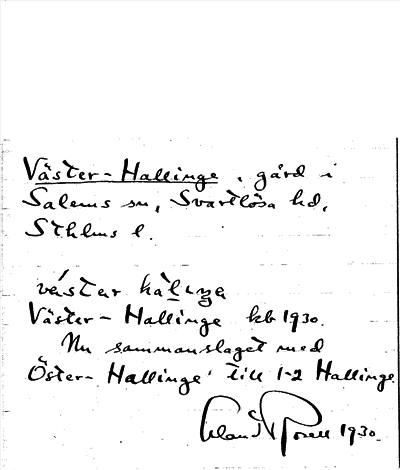 Väster-Hallinge, gård i
Salems sn, Svartlösa hd,
Sthlms l.
vä́star hàlıŋa
Väster-Hallinge kb 1930.
Nu sammanslaget med
Öster-Hallinge till 1-2 Hallinge.
Erland Rosell 1930.